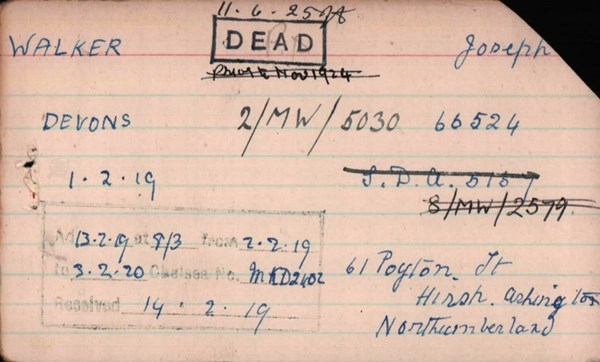 11.6.25
DEAD
WALKER Joseph
prior to Nov 1924
DEVONS 2/MW/5030 66524
1.2.19 S.D.A. 5157
8/MW/2579
Ad 13.2.19 at 8/3 from 2.2.19
to 3.2.20 Chelsea No.
Received 14.2.19
61 Poyton. St
Hirsh. Ashington
Northumberland